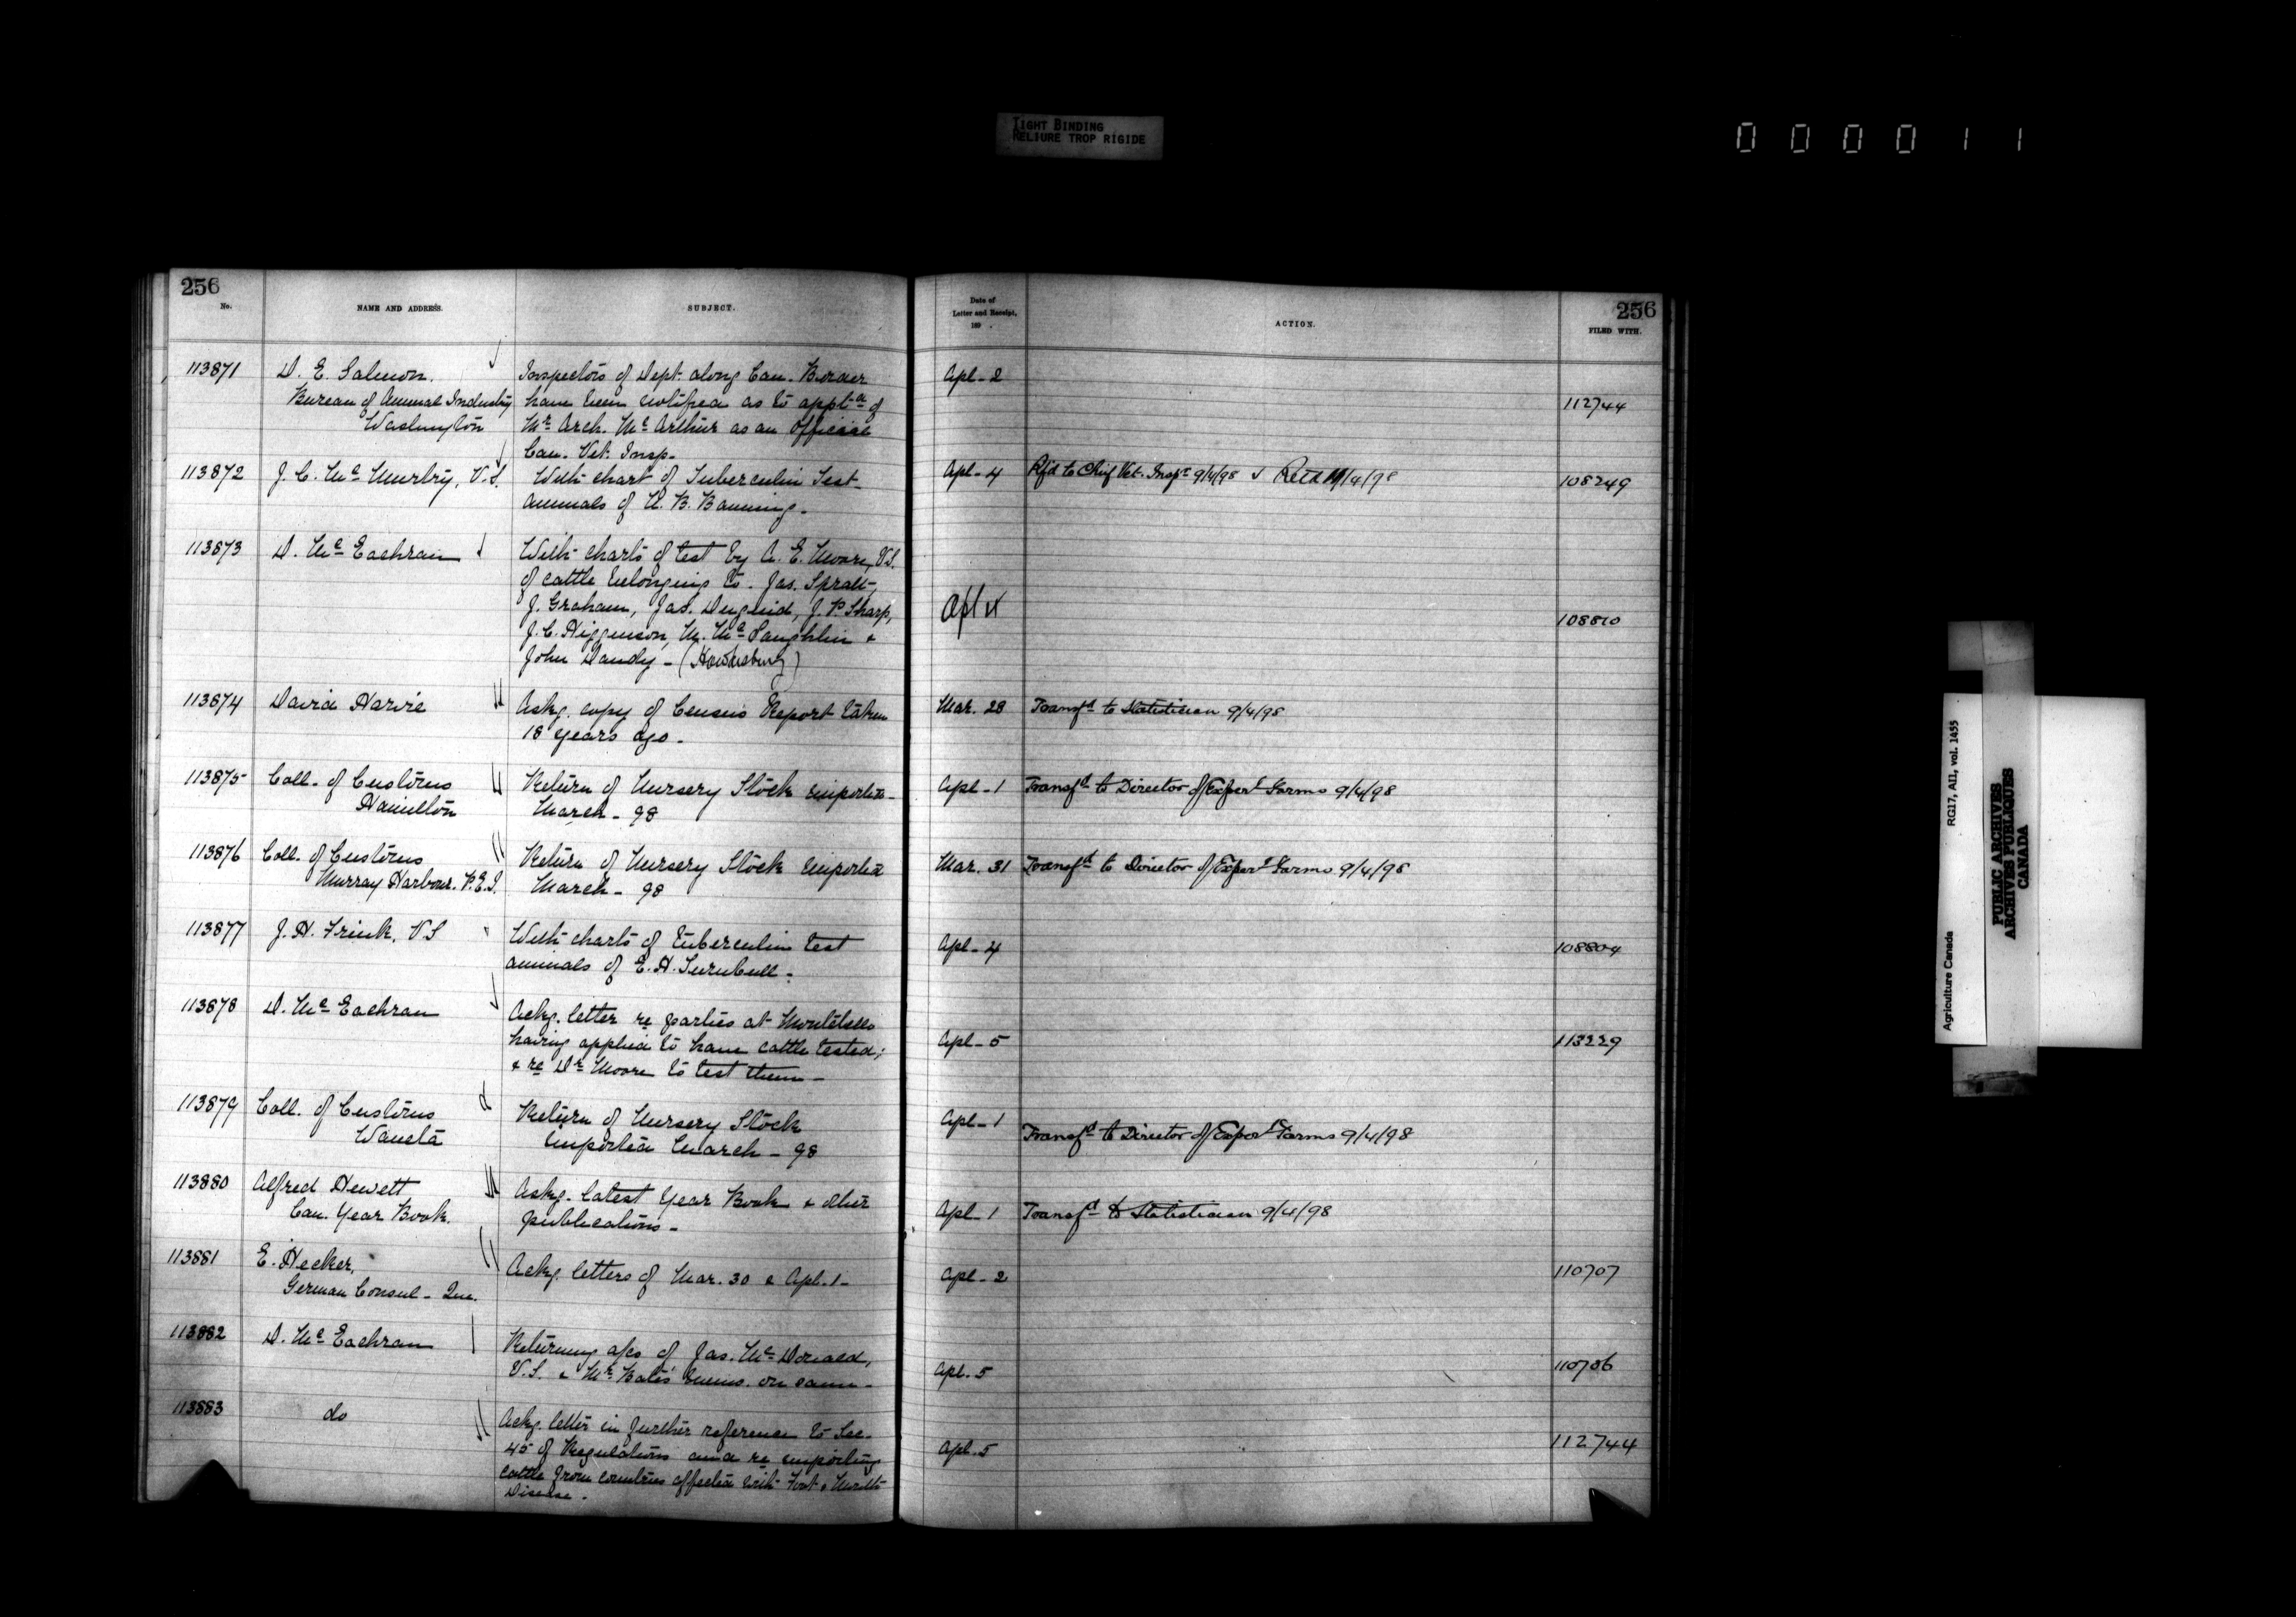 TIGHT BINDING
RELIURE TROP RIGIDE
000011
256
No.
NAME AND ADDRESS.
SUBJECT.
Date of
Letter and Receipt,
189 .
ACTION.
256
FILED WITH.
113871 D. E. Salmon. Inspectors of Dept. along Can. Border Apl - 2
Bureau of Animal Industry have been notified as to appt. of 112744
Washington Mr. Arch. McArthur as an Official
Can. Vet. Insp.
113872 J. C. McMurtry, V.S. With chart of Tuberculin Test Apl - 4 Rfd to Chief Vet. Inspr 9/4/98 Retd 11/4/98 108249
animals of B. Banning.
113873 D. McEachran With charts of test by A. E. Moore, V.S.
of cattle belonging to Jas. Spratt,
J. Graham, Jas. Duguid, J. P. Sharp, Apl 4 108810
J. C. Higginson, M. McLaughlin &
John Dandy - (Hawkesbury)
113874 David Harvie Askg. copy of Census Report taken Mar. 28 Transfd to Statistician 9/4/98
18 years ago -
113875 Coll. of Customs Return of Nursery Stock imported Apl - 1 Transfd to Director of Experl Farms 9/4/98
Hamilton March - 98
113876 Coll. of Customs Return of Nursery Stock imported Mar. 31 Transfd to Director of Experl Farms 9/4/98
Murray Harbour. P.E.I. March - 98
113877 J. H. Frink, V.S With charts of tuberculin test Apl - 4 108804
animals of E. H. Turnbull -
113878 D. McEachran Ackg. letter re parties at Montebello
having applied to have cattle tested; Apl - 5 113229
& re Dr Moore to test them -
113879 Coll. of Customs Return of Nursery Stock Apl - 1 Transfd to Director of Experl Farms 9/4/98
Waneta imported March - 98
113880 Alfred Hewett Askg. latest Year Book & other Apl - 1 Transfd to Statistician 9/4/98
Can. Year Book. publications -
113881 E. Hecker, Ackg. letters of Mar. 30 & Apl. 1 - Apl - 2 110707
German Consul - Que.
113882 D. McEachran Returning a/cs of Jas. McDonald, Apl. 5 110706
V.S. & Mr. memo. on same -
113883 do Ackg. letter in further reference to Sec. Apl. 5 112744
45 of Regulations and re importing
cattle from countries affected with Foot & Mouth
Disease.
Agriculture Canada RG17, AII, vol. 1455
PUBLIC ARCHIVES
ARCHIVES PUBLIQUES
CANADA